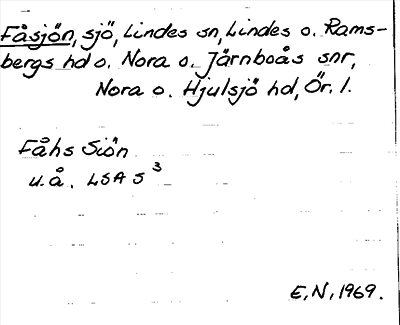 Fåsjön, sjö, Lindes sn, Lindes o. Rams-
bergs hd o. Nora o. Järnboås snr,
Nora o. Hjulsjö hd, Ör. l.
Fåhs Siön
u.å. LSA S³
E.N. 1969.